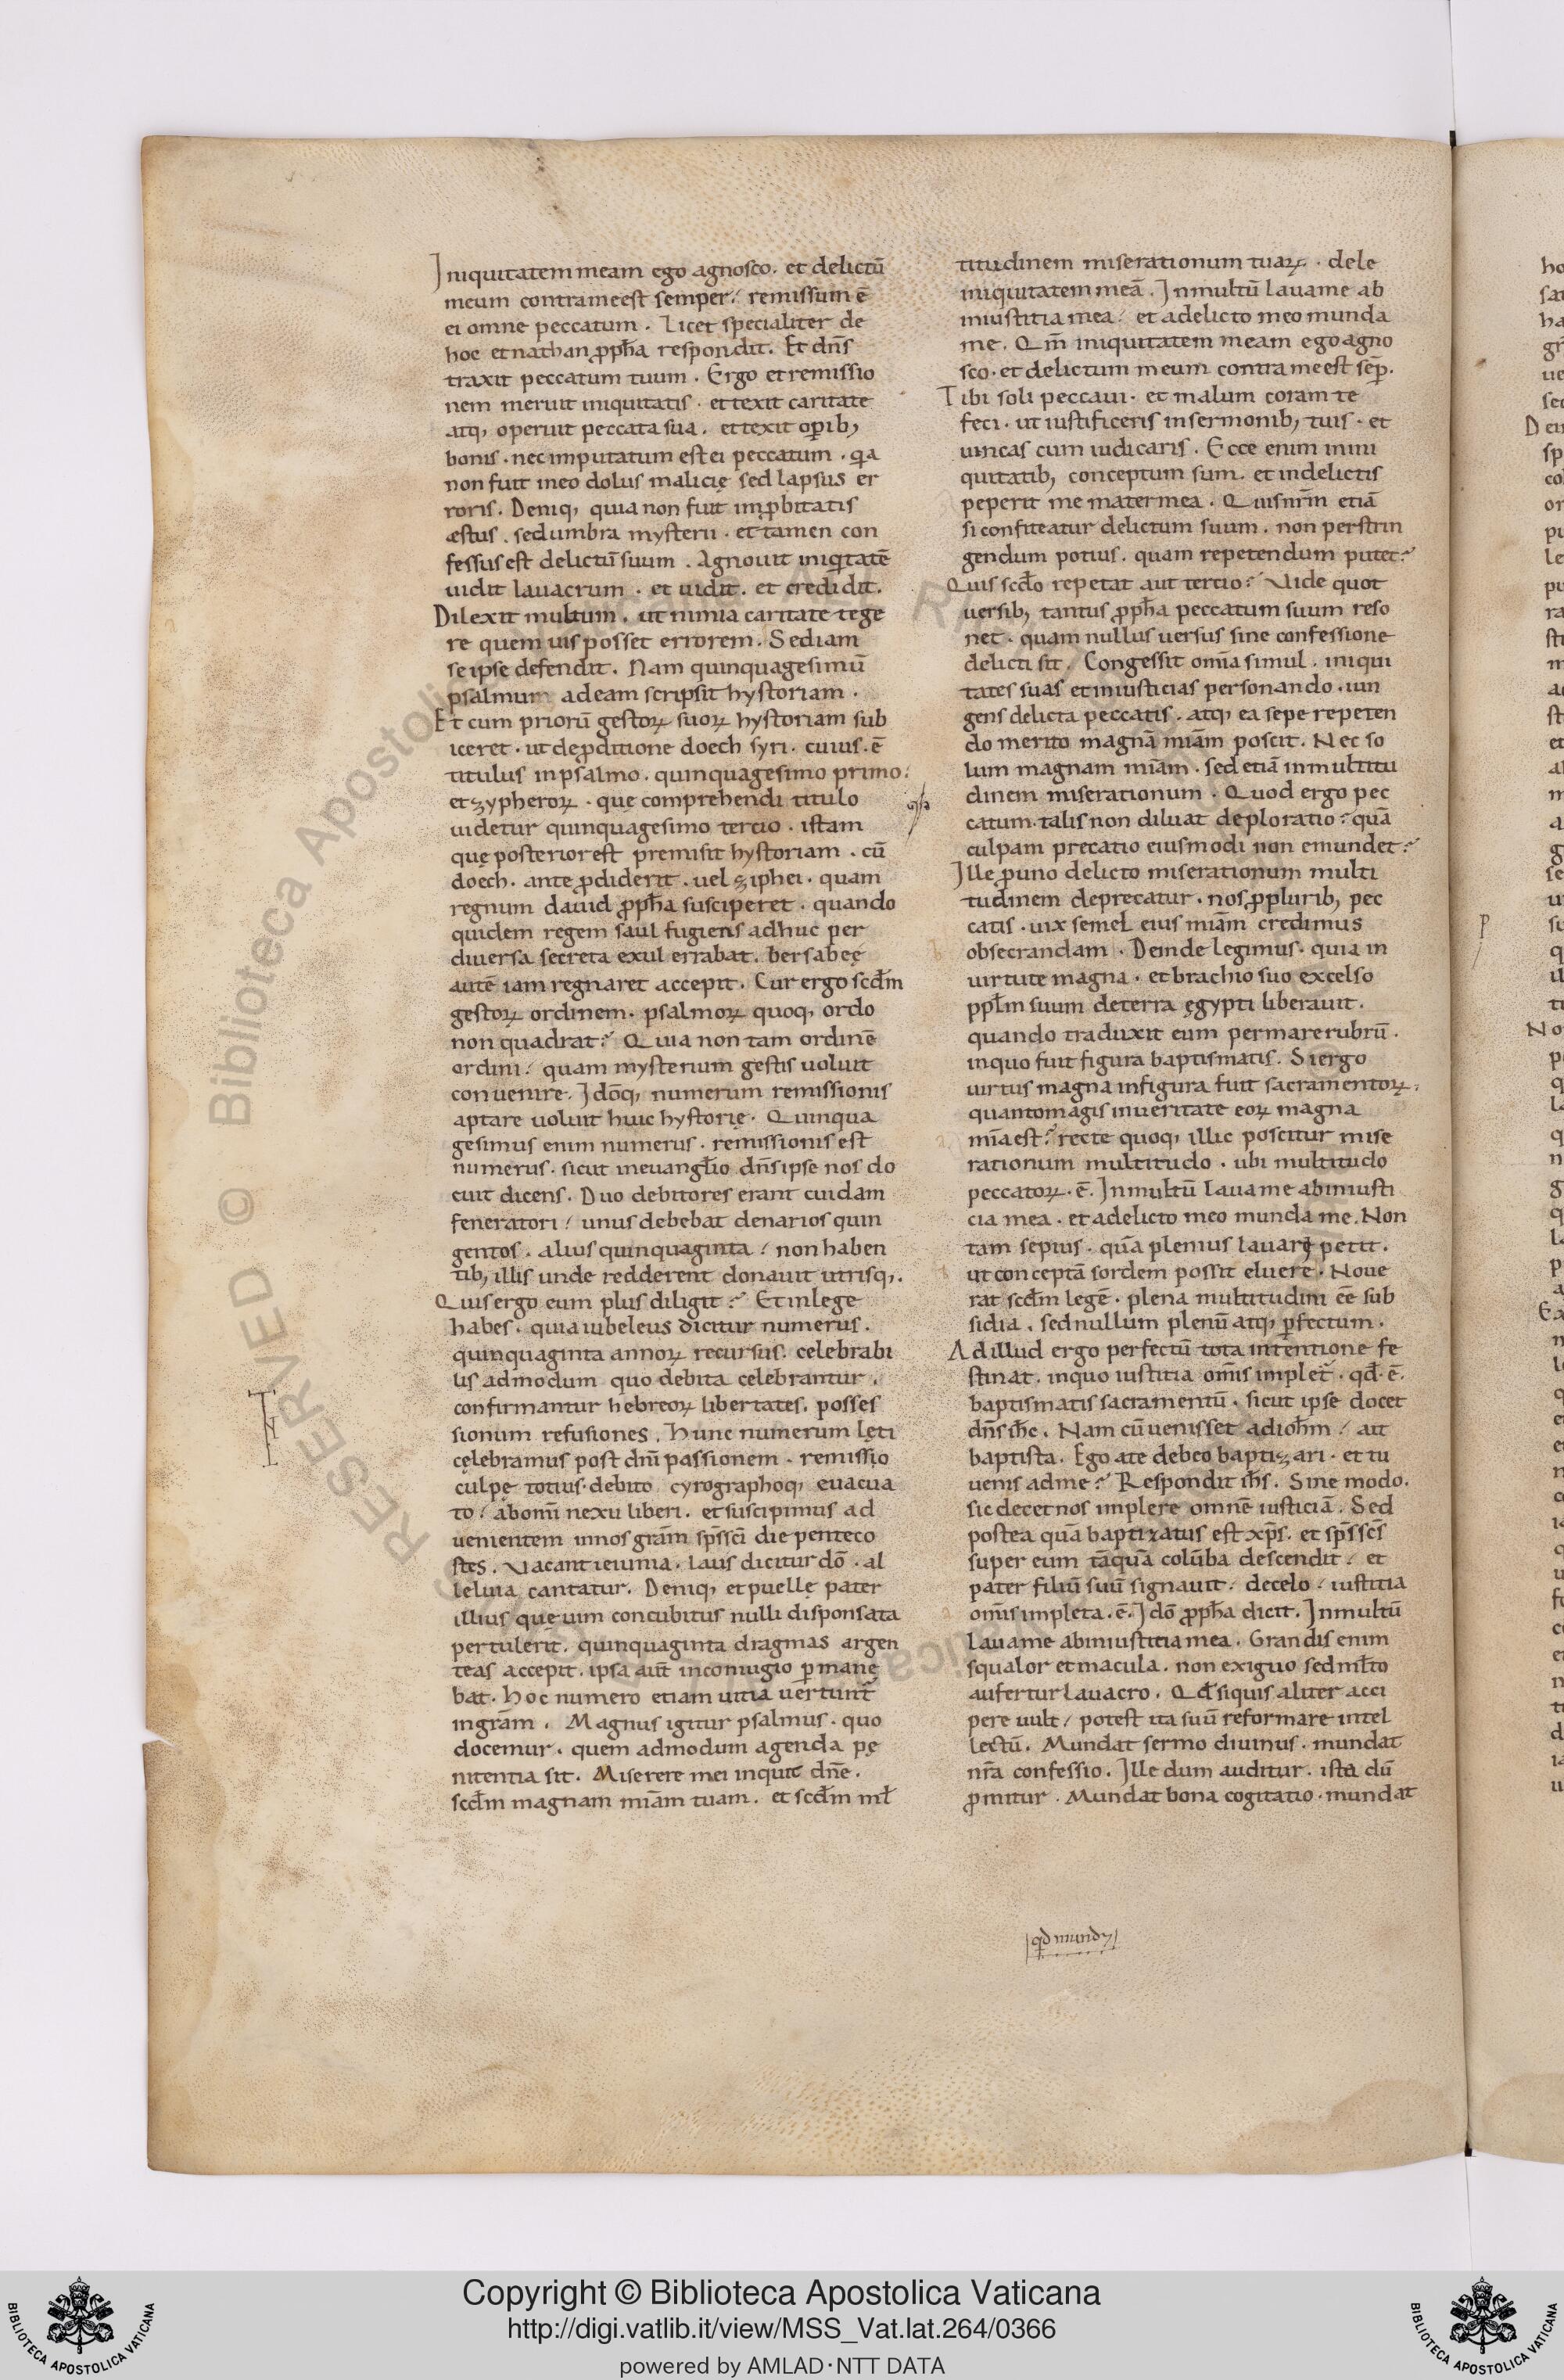 Iniquitatem meam ego agnosco. et delictū
meum contra me est semper. remissum ē
ei omne peccatum. Licet specialiter de
hoc et nathan ꝓph̄a respondit. Et dn̄s
traxit peccatum tuum. Ergo et remissio
nem meruit iniquitatis. et texit caritate
atq, operuit peccata sua. et texit oꝑib,
bonis. nec imputatum est ei peccatum. qa
non fuit in eo dolus malicię sed lapsus er
roris. Deniq, quia non fuit imꝓbitatis
æstus. sed umbra mysterii. et tamen con
fessus est delictū suum. Agnouit iniqitatē
uidit lauacrum. et uidit. et credidit.
Dilexit multum. ut nimia caritate tege
re quem uis posset errorem. Sed iam
se ipse defendit. Nam quinquagesimū
psalmum ad eam scripsit hystoriam.
Et cum priorū gestoꝝ suoꝝ hystoriam sub
iceret. ut de ꝓditione doech syri. cuius. ē
titulus in psalmo. quinquagesimo primo.
et zypheroꝝ. quę comprehendi titulo
uidetur quinquagesimo tercio. istam
quę posterior est premisit hystoriam. cū
doech. ante ꝓdiderit. uel ziphei. quam
regnum dauid ꝓph̄a susciperet. quando
quidem regem saul fugiens adhuc per
diuersa secreta exul errabat. bersabeę
autē iam regnaret accepit. Cur ergo scd̄m
gestoꝝ ordinem. psalmoꝝ quoq, ordo
non quadrat? Quia non tam ordinē
ordini. quam mysterium gestis uoluit
conuenire. Idōq, numerum remissionis
aptare uoluit huic hystorię. Quinqua
gesimus enim numerus. remissionis est
numerus. sicut in euangl̄io dn̄s ipse nos do
cuit dicens. Duo debitores erant cuidam
feneratori. unus debebat denarios quin
gentos. alius quinquaginta. non haben
tib, illis unde redderent donauit utrisq,.
Quis ergo eum plus diligit? Et in lege
habes. quia iubeleus dicitur numerus.
quinquaginta annoꝝ recursus. celebrabi
lis admodum quo debita celebrantur.
confirmantur hebreoꝝ libertates. posses
sionum refusiones. Hunc numerum lęti
cęlebramus post dn̄i passionem. remissio
culpę totius. debito cyrographoq, euacua
to. ab om̄i nexu liberi. et suscipimus ad
uenientem in nos gr̄am sp̄s sc̄i die penteco
stes. Vacant ieiunia. laus dicitur dō. al
leluia cantatur. Deniq, et puellę pater
illius quę uim concubitus nulli disponsata
pertulerit. quinquaginta dragmas argen
teas accepit. ipsa aut̄ in coniugio ꝑmanę
bat. Hoc numero etiam uitia uertunt̄
in gr̄am. Magnus igitur psalmus. quo
docemur. quem admodum agenda pę
nitentia sit. Miserere mei inquit dn̄e.
scd̄m magnam mīam tuam. et scd̄m ml̄
titudinem miserationum tuaꝝ. dele
iniquitatem meā. In multū laua me ab
iniustitia mea. et a delicto meo munda
me. Qm̄ iniquitatem meam ego agno
sco. et delictum meum contra me est seꝑ.
Tibi soli peccaui. et malum coram te
feci. ut iustificeris in sermonib, tuis. et
uincas cum iudicaris. Ecce enim in ini
quitatib, conceptum sum. et in delictis
peperit me mater mea. Quis nr̄m etiā
si confiteatur delictum suum. non perstrin
gendum potius. quam repetendum putet?
Quis scd̄o repetat aut tercio? Vide quot
uersib, tantus ꝓph̄a peccatum suum reso
net. quam nullus uersus sine confessione
delicti sit. Congessit om̄ia simul. iniqui
tates suas et iniusticias personando. iun
gens delicta peccatis. atq, ea sepe repeten
do merito magnā mīam poscit. Nec so
lum magnam mīam. sed etiā in multitu
dinem miserationum. Quod ergo pec
catum. talis non diluat deploratio? quā
culpam precatio eiusmodi non emundet?
Ille ꝓ uno delicto miserationum multi
tudinem deprecatur. nos ꝓ plurib, pec
catis. uix semel eius mīam credimus
obsecrandam. Deinde legimus. quia in
uirtute magna. et brachio suo excelso
ppl̄m suum de terra ęgypti liberauit.
quando traduxit eum per mare rubrū.
in quo fuit figura baptismatis. Si ergo
uirtus magna in figura fuit sacramentoꝝ.
quanto magis in ueritate eoꝝ magna
mīa est? recte quoq, illic poscitur mise
rationum multitudo. ubi multitudo
peccatoꝝ. ē. In multū laua me ab iniusti
cia mea. et a delicto meo munda me. Non
tam sepius. quā plenius lauari petit.
ut conceptā sordem possit eluere. Noue
rat scd̄m legē. plena multitudini ēē sub
sidia. sed nullum plenū atq, ꝑfectum.
Ad illud ergo perfectū tota intentione fe
stinat. in quo iustitia om̄is implet̄. qd̄. ē.
baptismatis sacramentū. sicut ipse docet
dn̄s ih̄c. Nam cū uenisset ad ioh̄m. ait
baptista. Ego a te debeo baptizari. et tu
uenis ad me? Respondit ih̄s. Sine modo.
sic decet nos implere omnē iusticiā. Sed
postea quā baptizatus est xp̄s. et sp̄s sc̄s
super eum tāquā colūba descendit. et
pater filiū suū signauit. de celo. iustitia
om̄is impleta. ē. Idō ꝓph̄a dicit. In multū
laua me ab iniustitia mea. Grandis enim
squalor et macula. non exiguo sed ml̄to
aufertur lauacro. Qd̄ si quis aliter acci
pere uult. potest ita suū reformare intel
lectū. Mundat sermo diuinus. mundat
nr̄a confessio. Ille dum auditur. ista dū
ꝓmitur. Mundat bona cogitatio. mundat
qd mund
RESERVED © Biblioteca Apostolica Vaticana
Copyright © Biblioteca Apostolica Vaticana
http://digi.vatlib.it/view/MSS_Vat.lat.264/0366
powered by AMLAD·NTT DATA
BIBLIOTECA APOSTOLICA VATICANA
BIBLIOTECA APOSTOLICA VATICANA